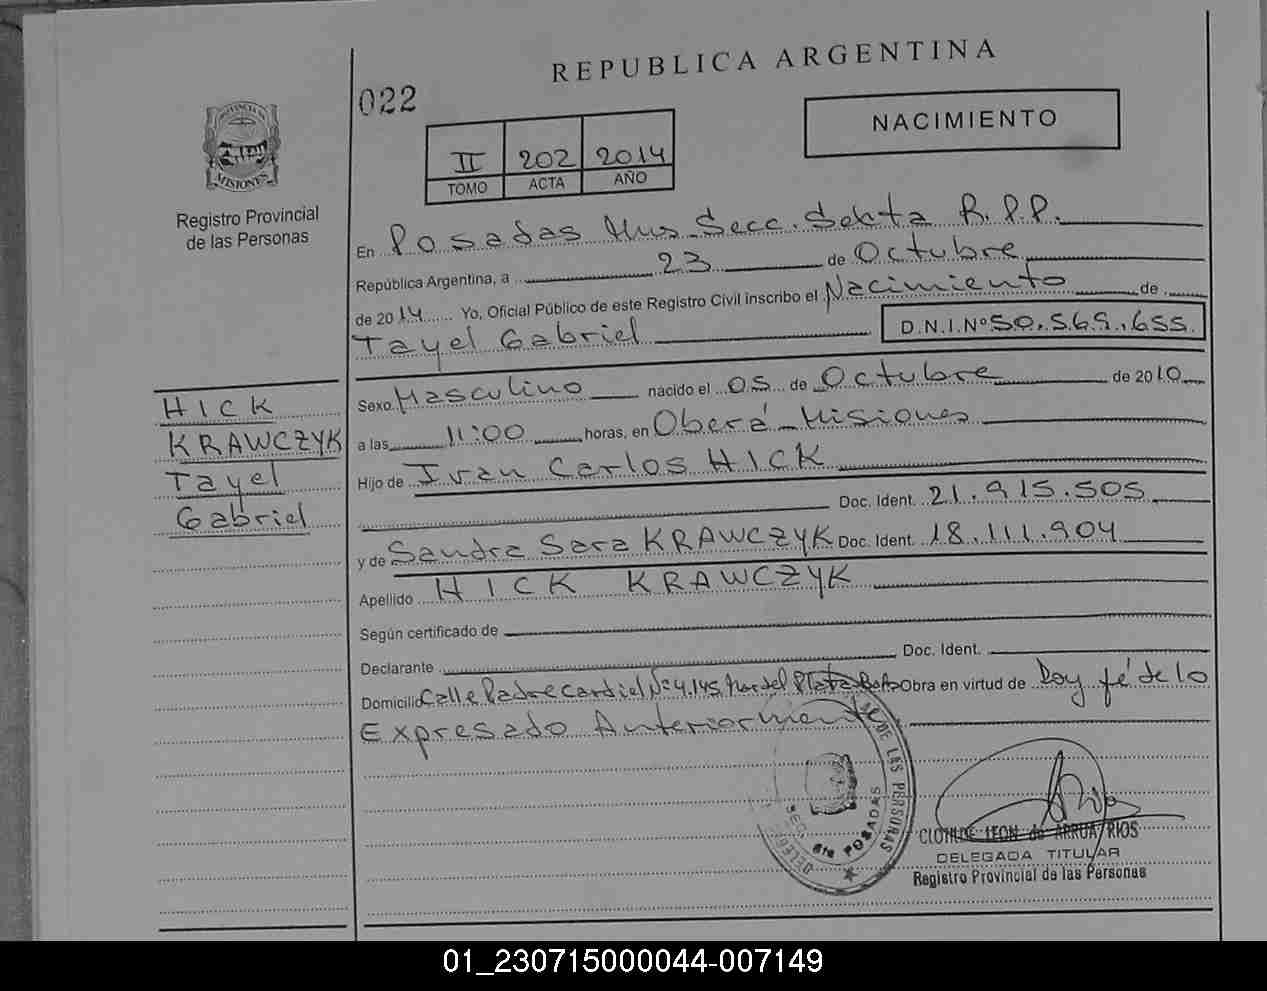 REPUBLICA ARGENTINA
022
NACIMIENTO
II 202 2014
TOMO ACTA AÑO
PROVINCIA DE
MISIONES
Registro Provincial
de las Personas
En Posadas Mns Secc. Sexta R.P.P.
República Argentina, a 23 de Octubre
de 2014 Yo, Oficial Público de este Registro Civil inscribo el Nacimiento de
Tayel Gabriel D.N.I.Nº 50.569.655
Sexo Masculino nacido el 05 de Octubre de 2010
a las 11:00 horas, en Oberá - Misiones
Hijo de Ivan Carlos HICK
Doc. Ident. 21.915.505
y de Sandra Sara KRAWCZYK Doc. Ident. 18.111.904
Apellido HICK KRAWCZYK
Según certificado de
Declarante Doc. Ident.
Domicilio Calle Padre Cardiel Nº 4.145 Mar del Plata Bs As Obra en virtud de Doy fé de lo
Expresado Anteriormente
HICK
KRAWCZYK
Tayel
Gabriel
DE LAS PERSONAS
SEC. 6ta POSADAS
CLOTILDE LEON de ARRUA RIOS
DELEGADA TITULAR
Registro Provincial de las Personas
01_230715000044-007149